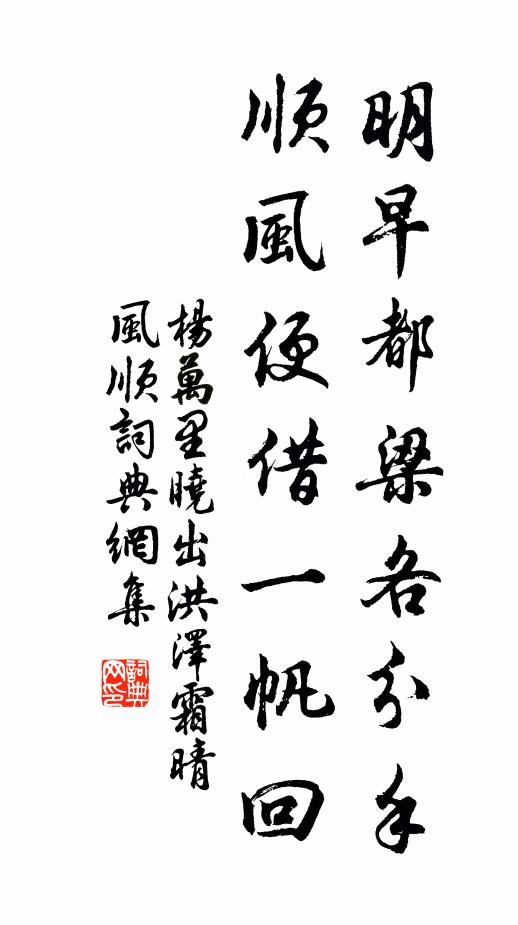 明早都梁各分手
順風便借一帆回
楊萬里曉出洪澤霜晴
風順詞典網集
詞典网印